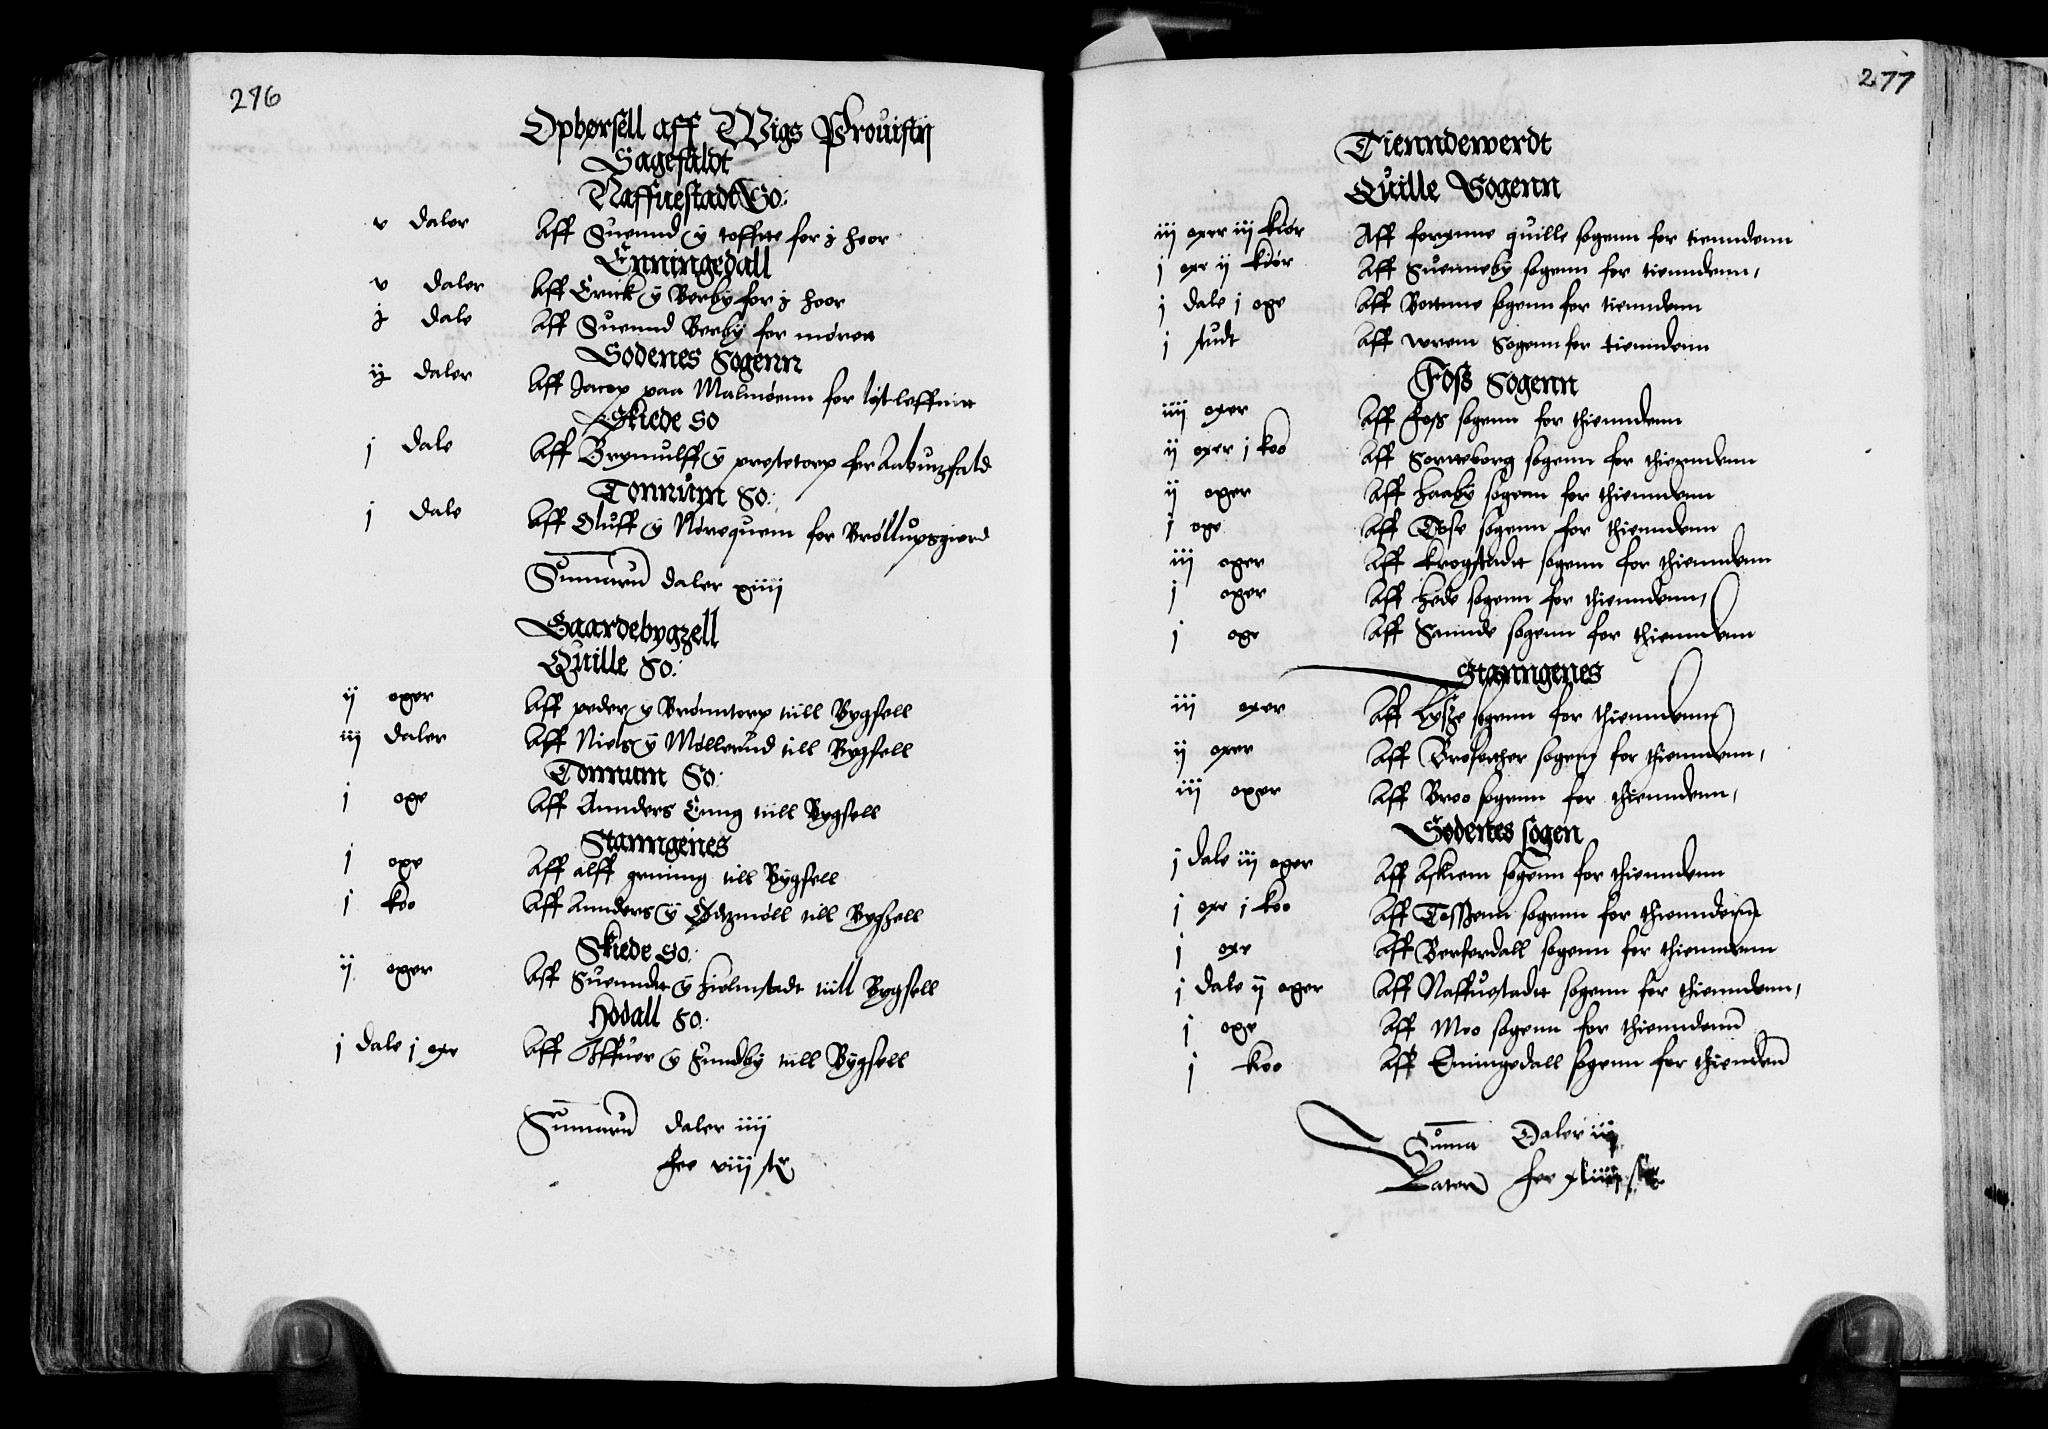 276
Opbørsell aff Wigs Prouistij
Sagefaldt
Naffuestadt So:
v daler Aff Suennd y tofftte for j hoor
Enningedall
v daler Aff Erick y Berby for j hoor
j dale Aff Suennd Berby for
Sodenes Sogenn
ij daler Aff Jacop paa Malmøenn for
Skiede So
j dale Aff Brynnulff y prestetorp for
Tonnum So:
j dale Aff Oluff y Nørequem for Brøllupsgierd
Summarum daler xiiij
Gaardebygzell
Quille So:
ij oxer Aff peder y Brønntorp till Bygsell
iij daler Aff Niels y Møllerud till Bygsell
Tonnum So:
j oxe Aff Annders Enng till Bygsell
Stanngenes
j oxe Aff alff grening till Bygsell
j koo Aff Annders y Odzmøll till Bygszell
Skiede So:
ij oxer Aff Suenndt y hielmstadt till Bygsell
Hodall So:
j dale j oxe Aff Affuer y Sundby till Bygsell
Summarum daler iiij
fee viij stk
277
Tienndewerdt
Quille Sogenn
iij oxer iij kiør Aff fornne quille sogenn for tienndenn
j oxe ij kiør Aff Suenneby sogenn for tienndenn,
j dale j oxe Aff Bottnne sogenn for tienndenn
j studt Aff wrem Sogenn for tienndenn
Foss Sogenn
iiij oxer Aff Foss sogenn for thienndenn
ij oxer j koo Aff Sorteborg sogenn for thienndenn
ij oxer Aff haaby sogenn for thienndenn
j oxe Aff Tose sogenn for thienndenn
iij oxer Aff krogstadtt sogenn for thienndenn
j oxer Aff hede sogenn for thienndenn,
j oxe Aff Sannde sogenn for thienndenn
Stanngenes
iij oxer Aff Lysze sogenn for thienndenn
ij oxer Aff Brofather sogenn for thienndenn,
iij oxer Aff Broo sogenn for thienndenn,
Sodenes sogen
j dale iij oxer Aff Askiem sogenn for thienndenn
j oxe j koo Aff Tossenn sogenn for thienndenn
j oxe Aff Berfendall sogenn for thienndenn
j dale ij oxer Aff Naffuestadtt sogenn for thienndenn,
j oxe Aff Moo sogenn for thienndenn
j koo Aff Enningedall sogenn for thienden
Summa Daler iij
Latere fee